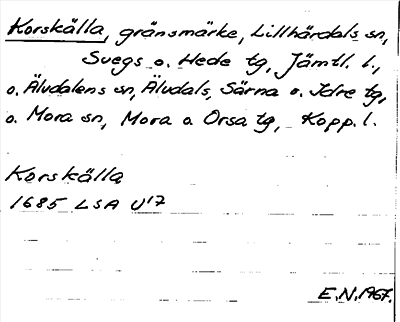 Korskälla, gränsmärke, Lillhärdals sn,
Svegs o. Hede tg, Jämtl. l.,
o. Älvdalens sn, Älvdals, Särna o. Idre tg,
o. Mora sn, Mora o Orsa tg, Kopp. l.
Korskälla
1685 LSA U17
E.N. 1967.